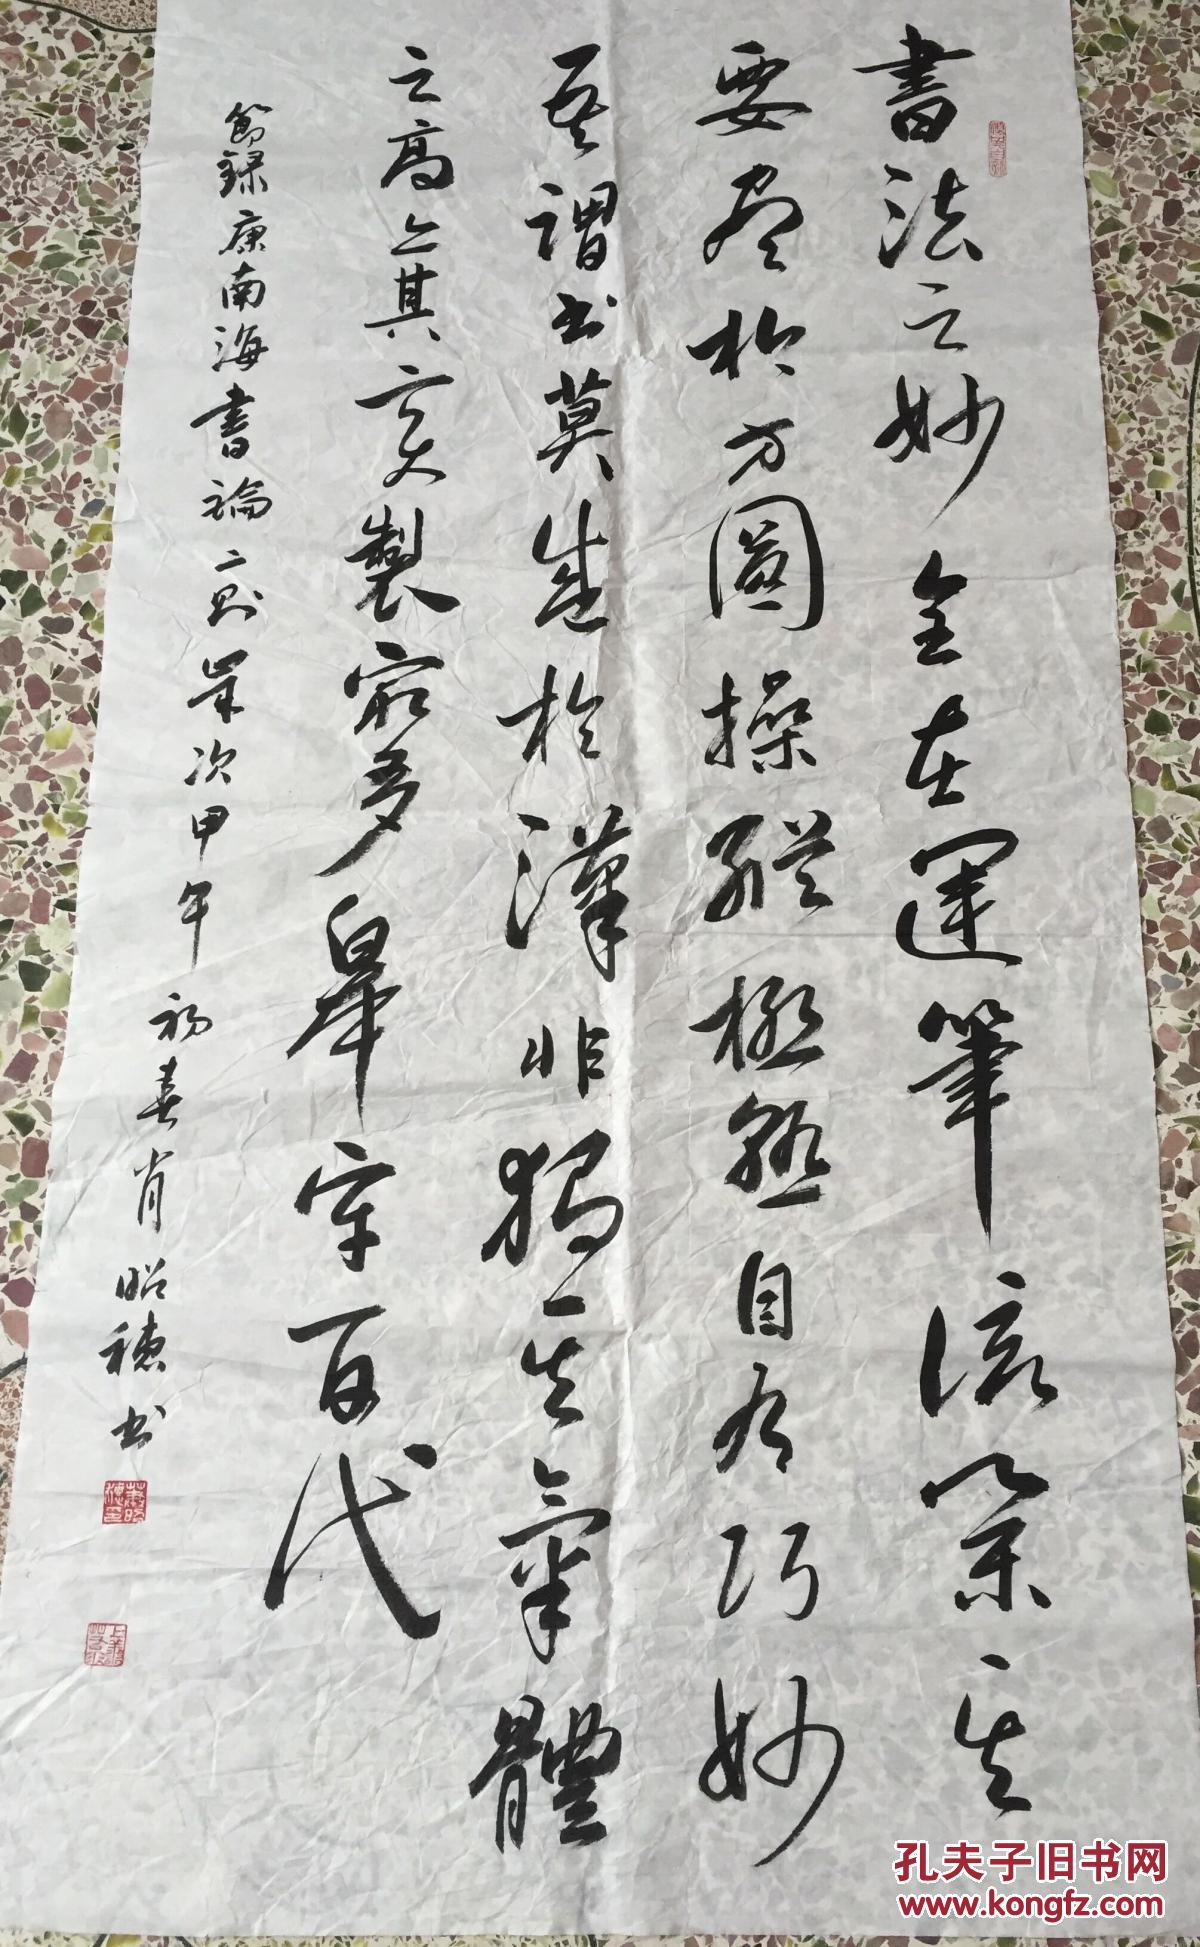 書法之妙全在運筆該舉其
要盡於方圓操縱極熟自有巧妙
吾謂书莫盛於漢非獨其氣體
之高亦其變製最多皋牢百代
節錄康南海書論二则歲次甲午初春肖昭穗书
孔夫子旧书网
www.kongfz.com